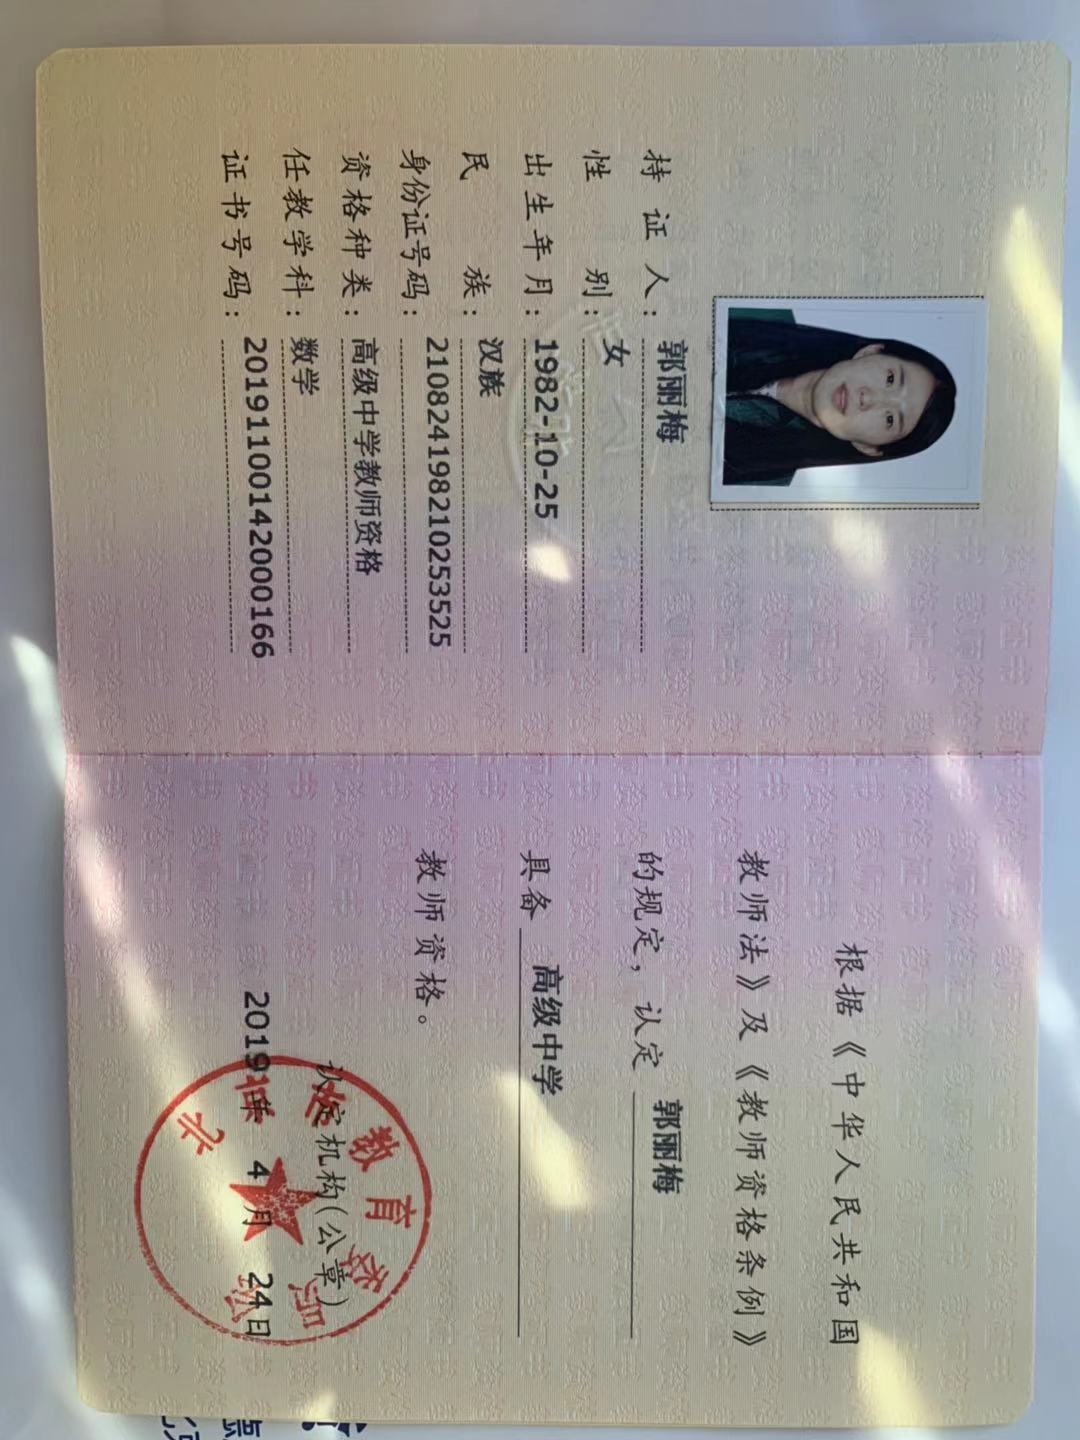 持证人：郭丽梅
性别：女
出生年月：1982-10-25
民族：汉族
身份证号码：210824198210253525
资格种类：高级中学教师资格
任教学科：数学
证书号码：20191100142000166
根据《中华人民共和国
教师法》及《教师资格条例》
的规定，认定 郭丽梅
具备 高级中学
教师资格。
认定机构(公章)
2019年 4月 24日
北京市教育委员会